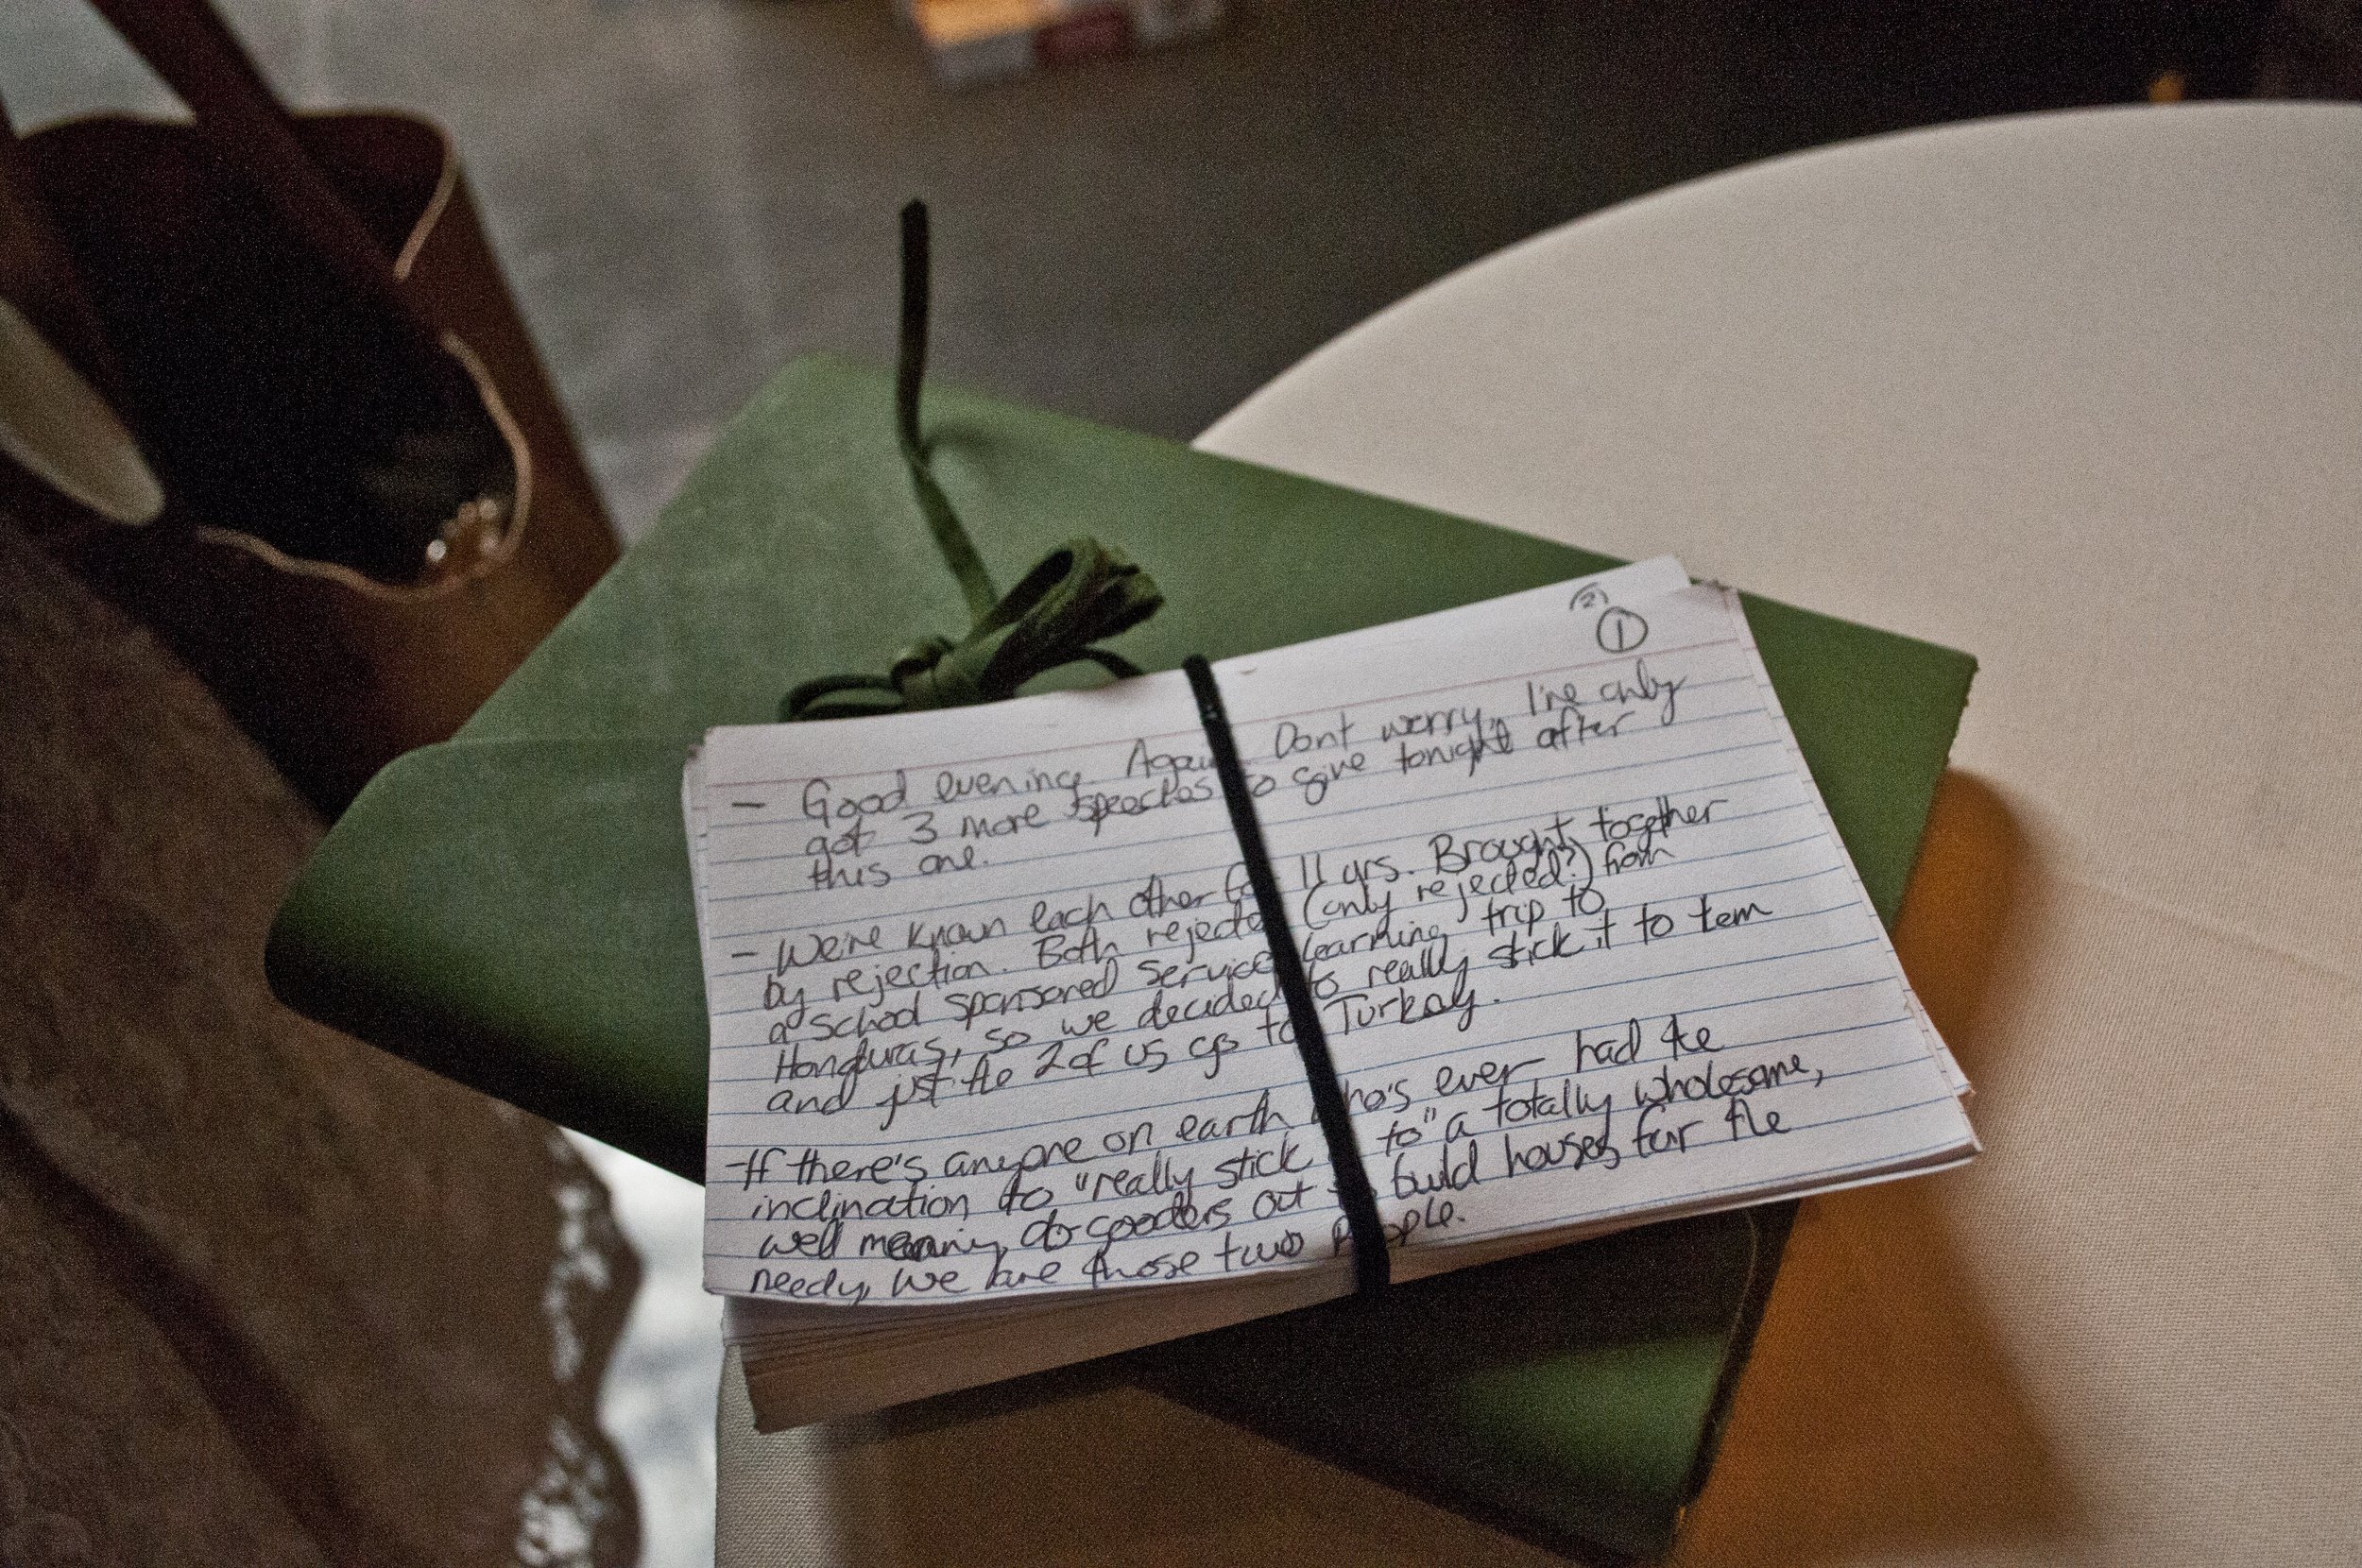 (2)
1
- Good evening. Again. Dont worry, I've only
got 3 more speeches to give tonight after
this one.
- We've known each other for 11 yrs. Brought together
by rejection. Both rejected (only rejected?) from
a school sponsored service learning trip to
Honduras, so we decided to really stick it to tem
and just the 2 of us go to Turkey.
- If there's anyone on earth who's ever had the
inclination to "really stick it to" a totally wholesome,
well meaning do-gooders out to build houses for the
needy, we are those two people.